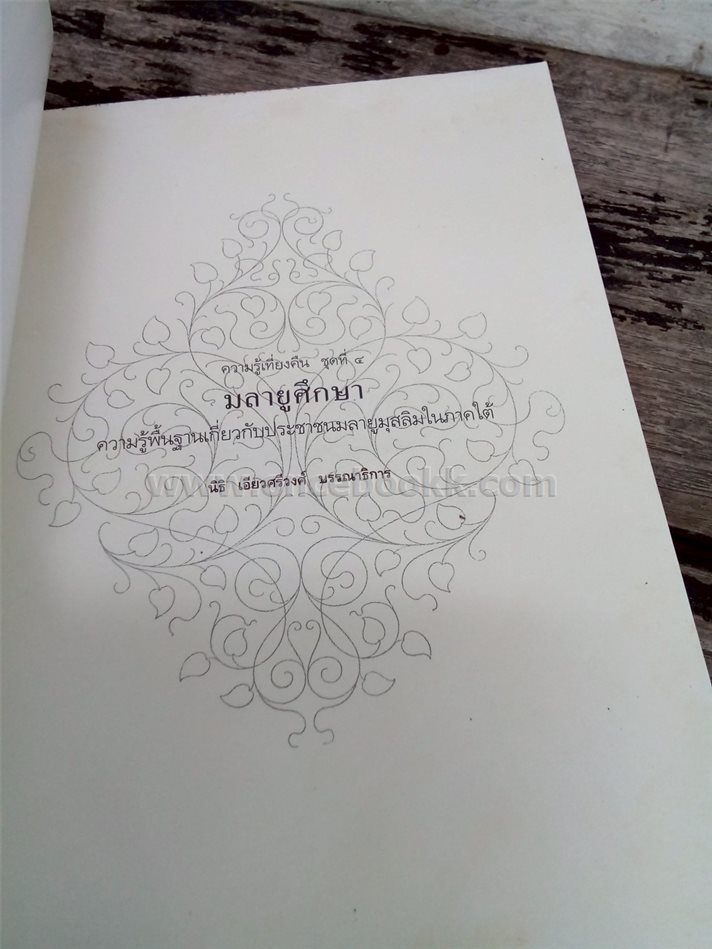 ความรู้เที่ยงคืน ชุดที่ ๔
มลายูศึกษา
ความรู้พื้นฐานเกี่ยวกับประชาชนมลายูมุสลิมในภาคใต้
นิธิ เอียวศรีวงศ์ บรรณาธิการ